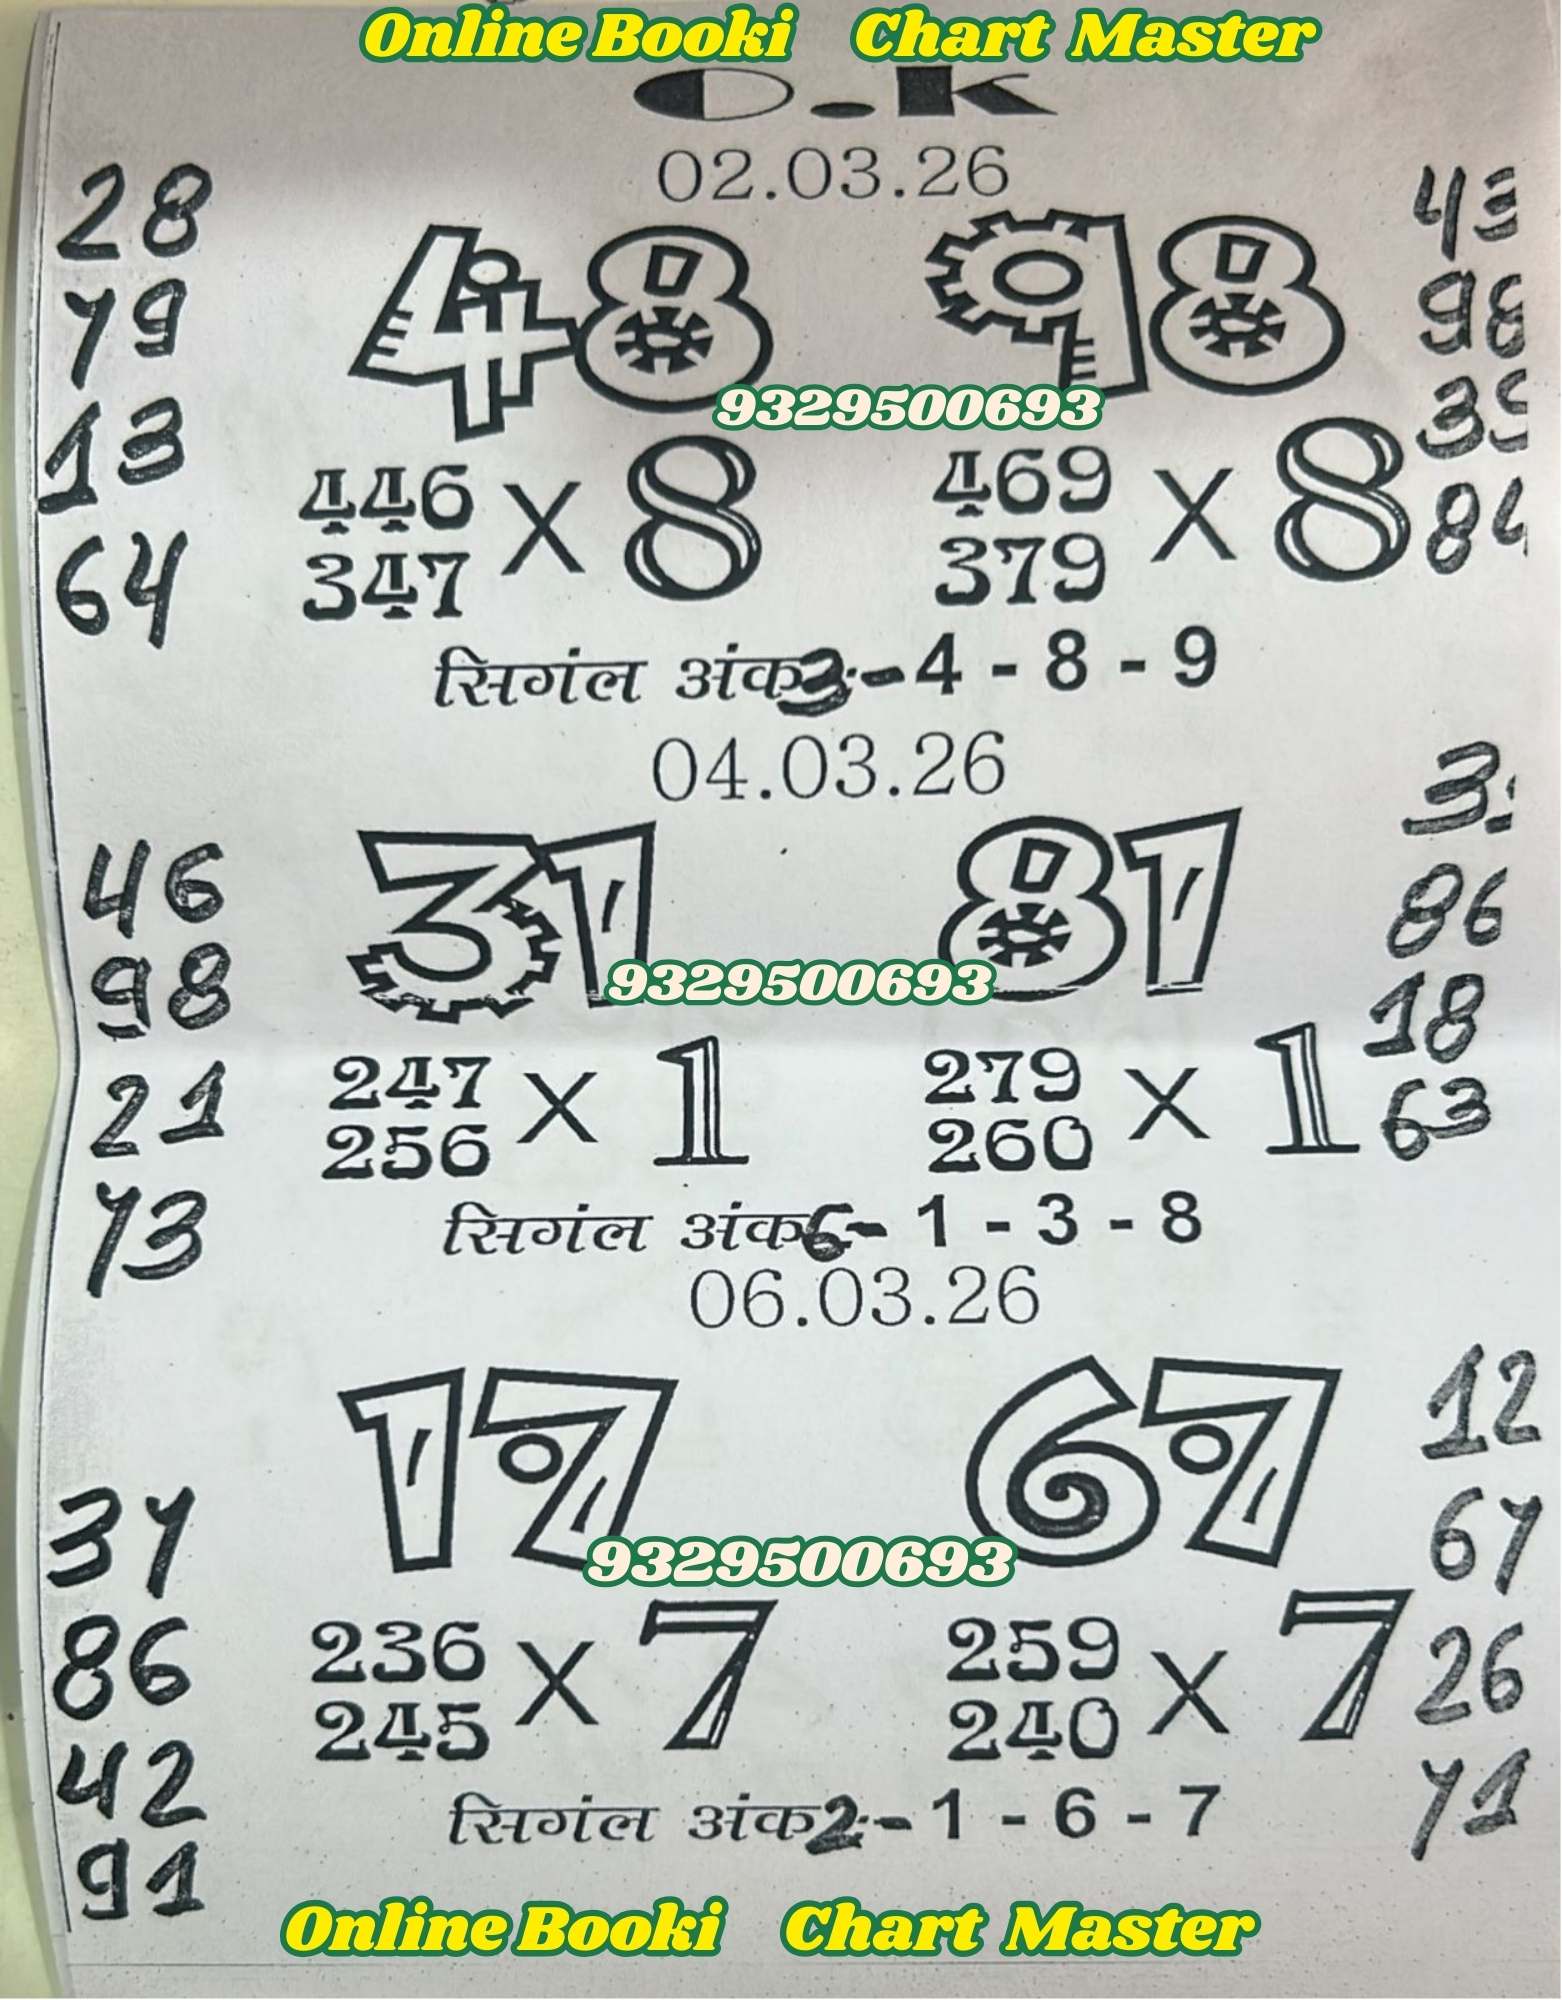 Online Booki Chart Master
O.K
02.03.26
28 48 98 43
79 98
9329500693
13 446 × 8 469 × 8 39
64 347 379 84
सिगंल अंक 3 - 4 - 8 - 9
04.03.26
46 31 81 3
98 86
9329500693
21 247 × 1 279 × 1 18
73 256 260 63
सिगंल अंक 6 - 1 - 3 - 8
06.03.26
17 67 12
37 67
9329500693
86 236 × 7 259 × 7 26
42 245 240 71
सिगंल अंक 2 - 1 - 6 - 7
91
Online Booki Chart Master